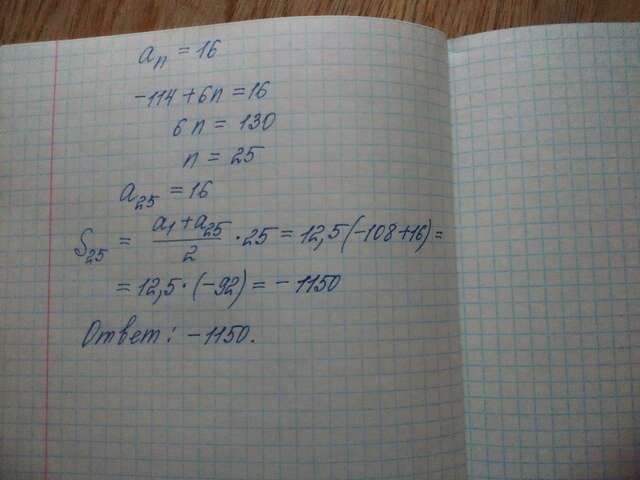 aₙ = 16
-114 + 6n = 16
6n = 130
n = 25
a₂₅ = 16
S₂₅ = (a₁ + a₂₅)/2 · 25 = 12,5(-108+16) =
= 12,5 · (-92) = -1150
Ответ: -1150.